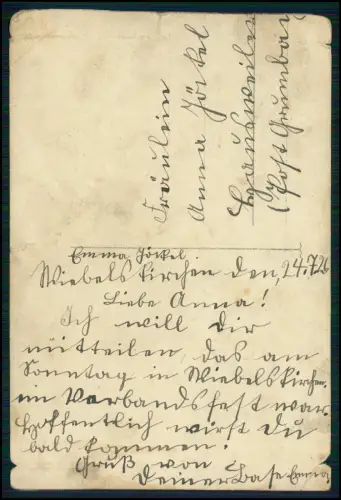 Fräulein
Anna Jöckel
Hausweiler
(Post Grumbach
Emma Jöckel
Wiebelskirchen den, 24.7.26
Liebe Anna!
Ich will dir
mitteilen, das am
Sonntag in Wiebelskirchen
im Verbandsfest war.
Hoffentlich wirst du
bald kommen.
Gruß von
Deiner Base Emma